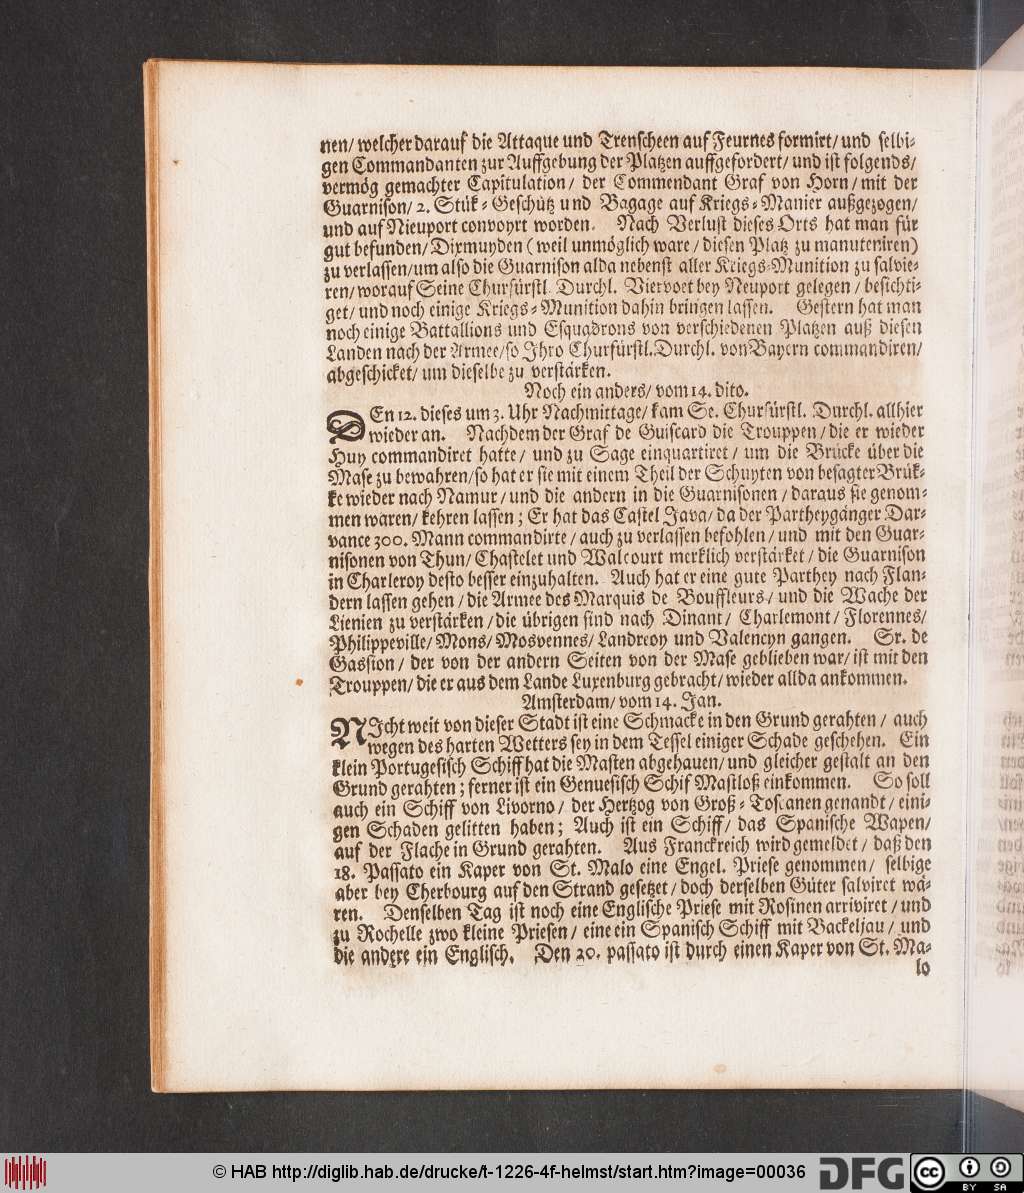 nen/ welcher darauf die Attaque und Trenscheen auf Feurnes formirt/ und selbi-
gen Commandanten zur Auffgebung der Platzen auffgefordert/ und ist folgends/
vermög gemachter Capitulation/ der Commendant Graf von Horn/ mit der
Guarnison/ 2. Stük-Geschütz und Bagage auf Kriegs-Manier außgezogen/
und auf Nieuport convoyrt worden. Nach Verlust dieses Orts hat man für
gut befunden/ Dixmuyden (weil unmöglich ware/ diesen Platz zu manuteniren)
zu verlassen/ um also die Guarnison alda nebenst aller Kriegs-Munition zu salvie-
ren/ worauf Seine Churfürstl. Durchl. Viervoet bey Neuport gelegen/ besichti-
get/ und noch einige Kriegs-Munition dahin bringen lassen. Gestern hat man
noch einige Battallions und Esquadrons von verschiedenen Platzen auß diesen
Landen nach der Armee/ so Ihro Churfürstl. Durchl. von Bayern commandiren/
abgeschicket/ um dieselbe zu verstärken.
Noch ein anders/ vom 14. dito.
DEn 12. dieses um 3. Uhr Nachmittage/ kam Se. Churfürstl. Durchl. allhier
wieder an. Nachdem der Graf de Guiscard die Trouppen/ die er wieder
Huy commandiret hatte/ und zu Sage einquartiret/ um die Brücke über die
Mase zu bewahren/ so hat er sie mit einem Theil der Schuyten von besagter Brük-
ke wieder nach Namur/ und die andern in die Guarnisonen/ daraus sie genom-
men waren/ kehren lassen; Er hat das Castel Java/ da der Partheygänger Dar-
vance 300. Mann commandirte/ auch zu verlassen befohlen/ und mit den Guar-
nisonen von Thun/ Chastelet und Walcourt merklich verstärket/ die Guarnison
in Charleroy desto besser einzuhalten. Auch hat er eine gute Parthey nach Flan-
dern lassen gehen/ die Armee des Marquis de Bouffleurs/ und die Wache der
Lienien zu verstärken/ die übrigen sind nach Dinant/ Charlemont/ Florennes/
Philippeville/ Mons/ Mosvennes/ Landrcoy und Valencyn gangen. Sr. de
Gassion/ der von der andern Seiten von der Mase geblieben war/ ist mit den
Trouppen/ die er aus dem Lande Luxenburg gebracht/ wieder allda ankommen.
Amsterdam/ vom 14. Jan.
NIcht weit von dieser Stadt ist eine Schmacke in den Grund gerahten/ auch
wegen des harten Wetters sey in dem Tessel einiger Schade geschehen. Ein
klein Portugesisch Schiff hat die Masten abgehauen/ und gleicher gestalt an den
Grund gerahten; ferner ist ein Genuesisch Schif Mastloß einkommen. So soll
auch ein Schiff von Livorno/ der Hertzog von Groß-Toscanen genandt/ eini-
gen Schaden gelitten haben; Auch ist ein Schiff/ das Spanische Wapen/
auf der Flache in Grund gerahten. Aus Franckreich wird gemeldet/ daß den
18. Passato ein Kaper von St. Malo eine Engel. Priese genommen/ selbige
aber bey Cherbourg auf den Strand gesetzet/ doch derselben Güter salviret wä-
ren. Denselben Tag ist noch eine Englische Priese mit Rosinen arriviret/ und
zu Rochelle zwo kleine Priesen/ eine ein Spanisch Schiff mit Backeljau/ und
die andere ein Englisch. Den 20. passato ist durch einen Kaper von St. Ma-
lo
© HAB http://diglib.hab.de/drucke/t-1226-4f-helmst/start.htm?image=00036
DFG
cc BY SA